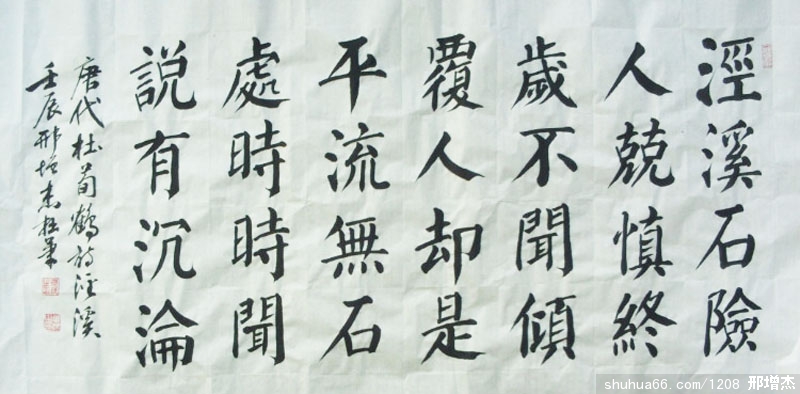 涇溪石險
人兢慎終
歲不聞傾
覆人却是
平流無石
處時時聞
說有沉淪
唐代杜荀鶴詩涇溪
壬辰邢增杰拙筆
shuhua66.com/1208 邢增杰